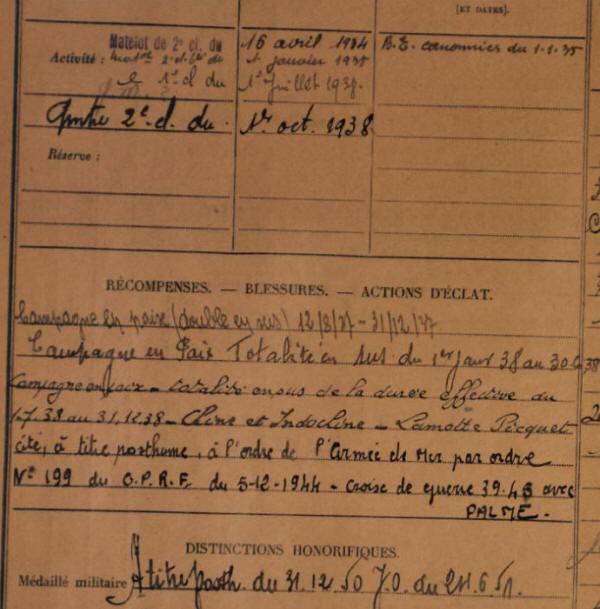 [ET DATES].
Matelot de 2e cl. du 16 avril 1934 B.E. canonnier du 1-1-35
Activité : mat. 2e cl. du 1 janvier 1935
1e cl du 1er juillet 1938.
Qmtre 2e cl. du. 1er oct. 1938
Réserve :
RÉCOMPENSES. — BLESSURES. — ACTIONS D'ÉCLAT.
Campagne en paix (double en sus) 12/8/37 - 31/12/37
Campagne en Paix Totalité en sus du 1er janv 38 au 30 38
Campagne en paix - totalité en sus de la durée effective du
1-7 38 au 31.12.38 - Chine et Indochine - Lamotte Picquet
cité, à titre posthume, à l'ordre de l'Armée de Mer par ordre
No 199 du O.P.R.F. du 5-12-1944 - Croise de guerre 39.45 avec
PALME.
DISTINCTIONS HONORIFIQUES.
Médaillé militaire A titre posth. du 31.12.50 J.O. du 6.51.